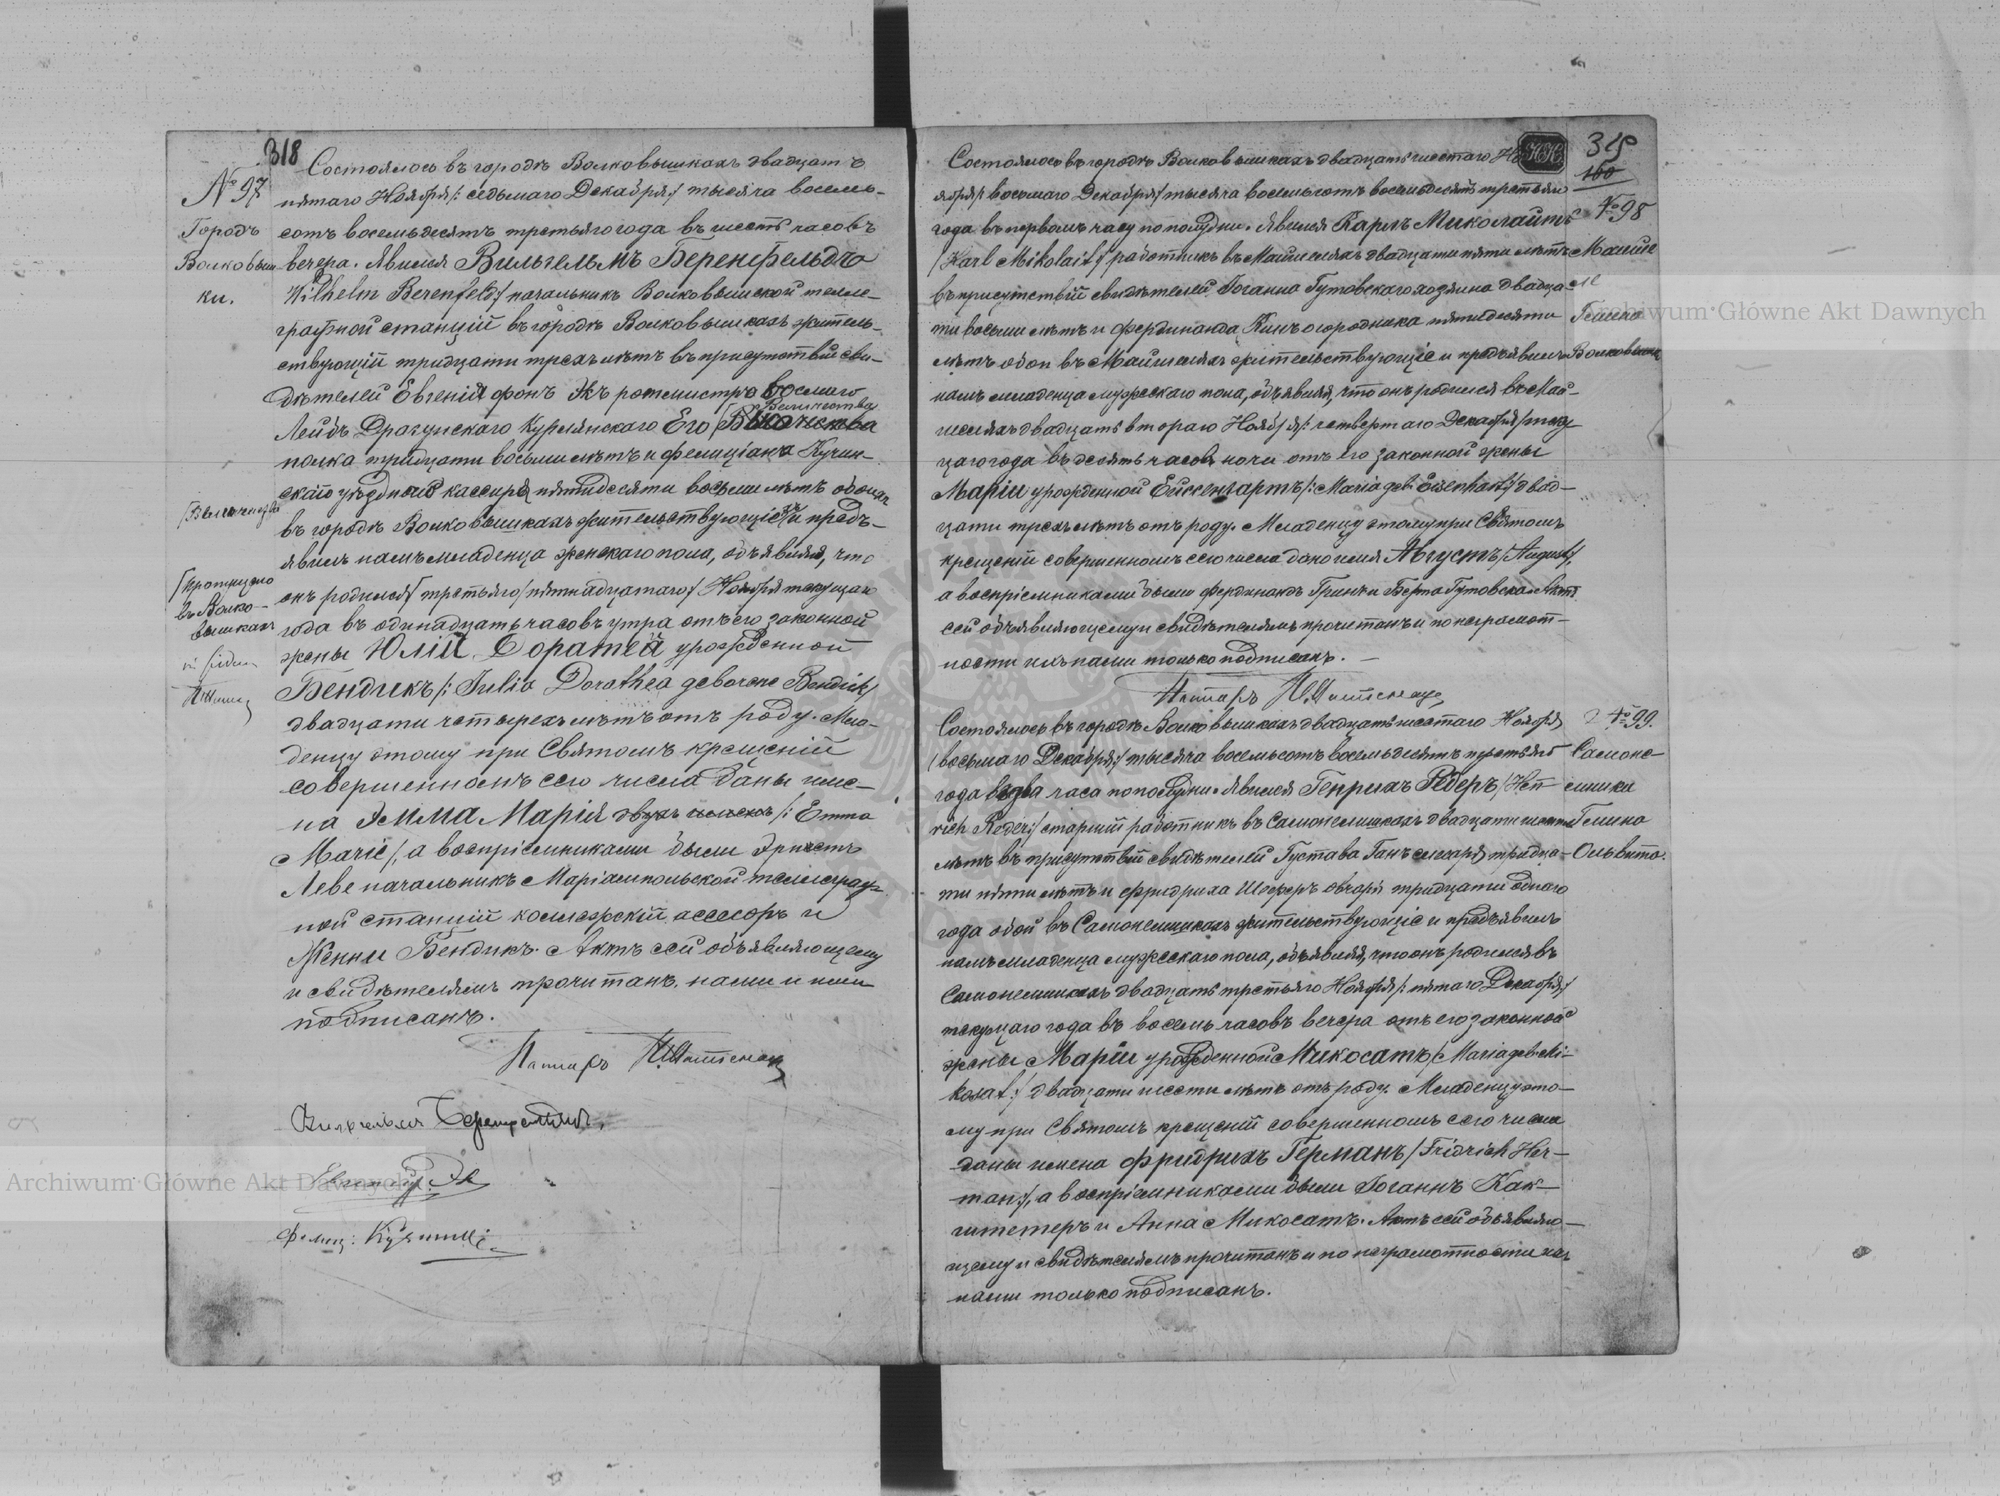 318
№ 97
Городъ
Волковыш-
ки.
Состоялось въ городѣ Волковышкахъ двадцать
пятаго Ноября /: седьмаго Декабря :/ тысяча восемь-
сотъ восемьдесятъ третьяго года въ шесть часовъ
вечера. Явился Вильгельмъ Беренфельдъ
Wilhelm Berenfeld :/ начальникъ Волковышской теле-
графной станціи въ городѣ Волковышкахъ житель-
ствующій тридцати трехъ лѣтъ въ присутствіи сви-
дѣтелей Евгенія фонъ Экъ ротмистра
Величества
Лейбъ Драгунскаго Курляндскаго Его
полка тридцати восьми лѣтъ и Фелиціана Кучин-
скаго уѣзднаго кассира пятидесяти восьми лѣтъ обоихъ
въ городѣ Волковышкахъ жительствующихъ и предъ-
явилъ намъ младенца женскаго пола, объявляя, что
онъ родился третьяго /пятнадцатаго/ Ноября текущаго
года въ одинадцать часовъ утра отъ его законной
жены Юліи Доратеи урожденной
Бендикъ /: Julia Dorothea geborene Bendick /
двадцати четырехъ лѣтъ отъ роду. Мла-
денцу этому при Святомъ крещеніи
совершенномъ сего числа даны име-
на Эмма Марія двухъ именъ /: Emma
Marie /, а воспріемниками были Эрнестъ
Леве начальникъ Маріампольской телеграф-
ной станціи коллежскій асессоръ и
Женни Бендикъ. Актъ сей объявляющему
и свидѣтелямъ прочитанъ, нами и ими
подписанъ.
Пасторъ
Вильгельмъ Беренфельдъ.
Евгеній Эк
Фелиц: Кучинскі
/Величества
въ Волко-
вышкахъ
319
100
№ 98
Состоялось въ городѣ Волковышкахъ двадцать шестаго Но-
ября /восьмаго Декабря/ тысяча восемьсотъ восемьдесятъ третьяго
года въ первомъ часу по полудни. Явился Карлъ Миколайтъ
/Karl Mikolait :/ работникъ въ Майшеляхъ двадцати пяти лѣтъ
въ присутствіи свидѣтелей Іоганна Гутовскаго хозяина двадца-
ти восьми лѣтъ и Фердинанда Кинъ огородника пятидесяти
лѣтъ обои въ Майшеляхъ жительствующіе и предъявилъ
намъ младенца мужескаго пола, объявляя, что онъ родился въ Май-
шеляхъ двадцать втораго Ноября /: четвертаго Декабря / теку-
щаго года въ десять часовъ ночи отъ его законной жены
Маріи урожденной Ейзенгартъ /: Maria geb. Eisenhart :/ двад-
цати трехъ лѣтъ отъ роду. Младенцу этому при Святомъ
крещеніи совершенномъ сего числа дано имя Августъ / August /,
а воспріемниками были Фердинандъ Гринъ и Берта Гутовская. Актъ
сей объявляющему и свидѣтелямъ прочитанъ и по неграмот-
ности ихъ нами только подписанъ. —
Пасторъ
№ 99.
Самоне-
лишки
Гмина
Ольвита.
Состоялось въ городѣ Волковышкахъ двадцать шестаго Ноября
/восьмаго Декабря :/ тысяча восемьсотъ восемьдесятъ третьяго
года въ два часа по полудни. Явился Генрихъ Редеръ / Hein-
rich Reder :/ старшій работникъ въ Самонелишкахъ двадцати шести
лѣтъ въ присутствіи свидѣтелей Густава Ганъ слесаря тридца-
ти пяти лѣтъ и Фридриха Шеферъ овчаря тридцати одного
года обои въ Самонелишкахъ жительствующіе и предъявилъ
намъ младенца мужескаго пола, объявляя, что онъ родился въ
Самонелишкахъ двадцать третьяго Ноября /: пятаго Декабря /
текущаго года въ восемь часовъ вечера отъ его законной
жены Маріи урожденной Микосатъ / Maria geb. Mi-
kosat :/ двадцати шести лѣтъ отъ роду. Младенцу это-
му при Святомъ крещеніи совершенномъ сего числа
даны имена Фридрихъ Германъ / Fridrich Her-
man :/, а воспріемниками были Іоганнъ Как-
шметеръ и Анна Микосатъ. Актъ сей объявляю-
щему и свидѣтелямъ прочитанъ и по неграмотности ихъ
нами только подписанъ.
Archiwum Główne Akt Dawnych
Archiwum Główne Akt Dawnych